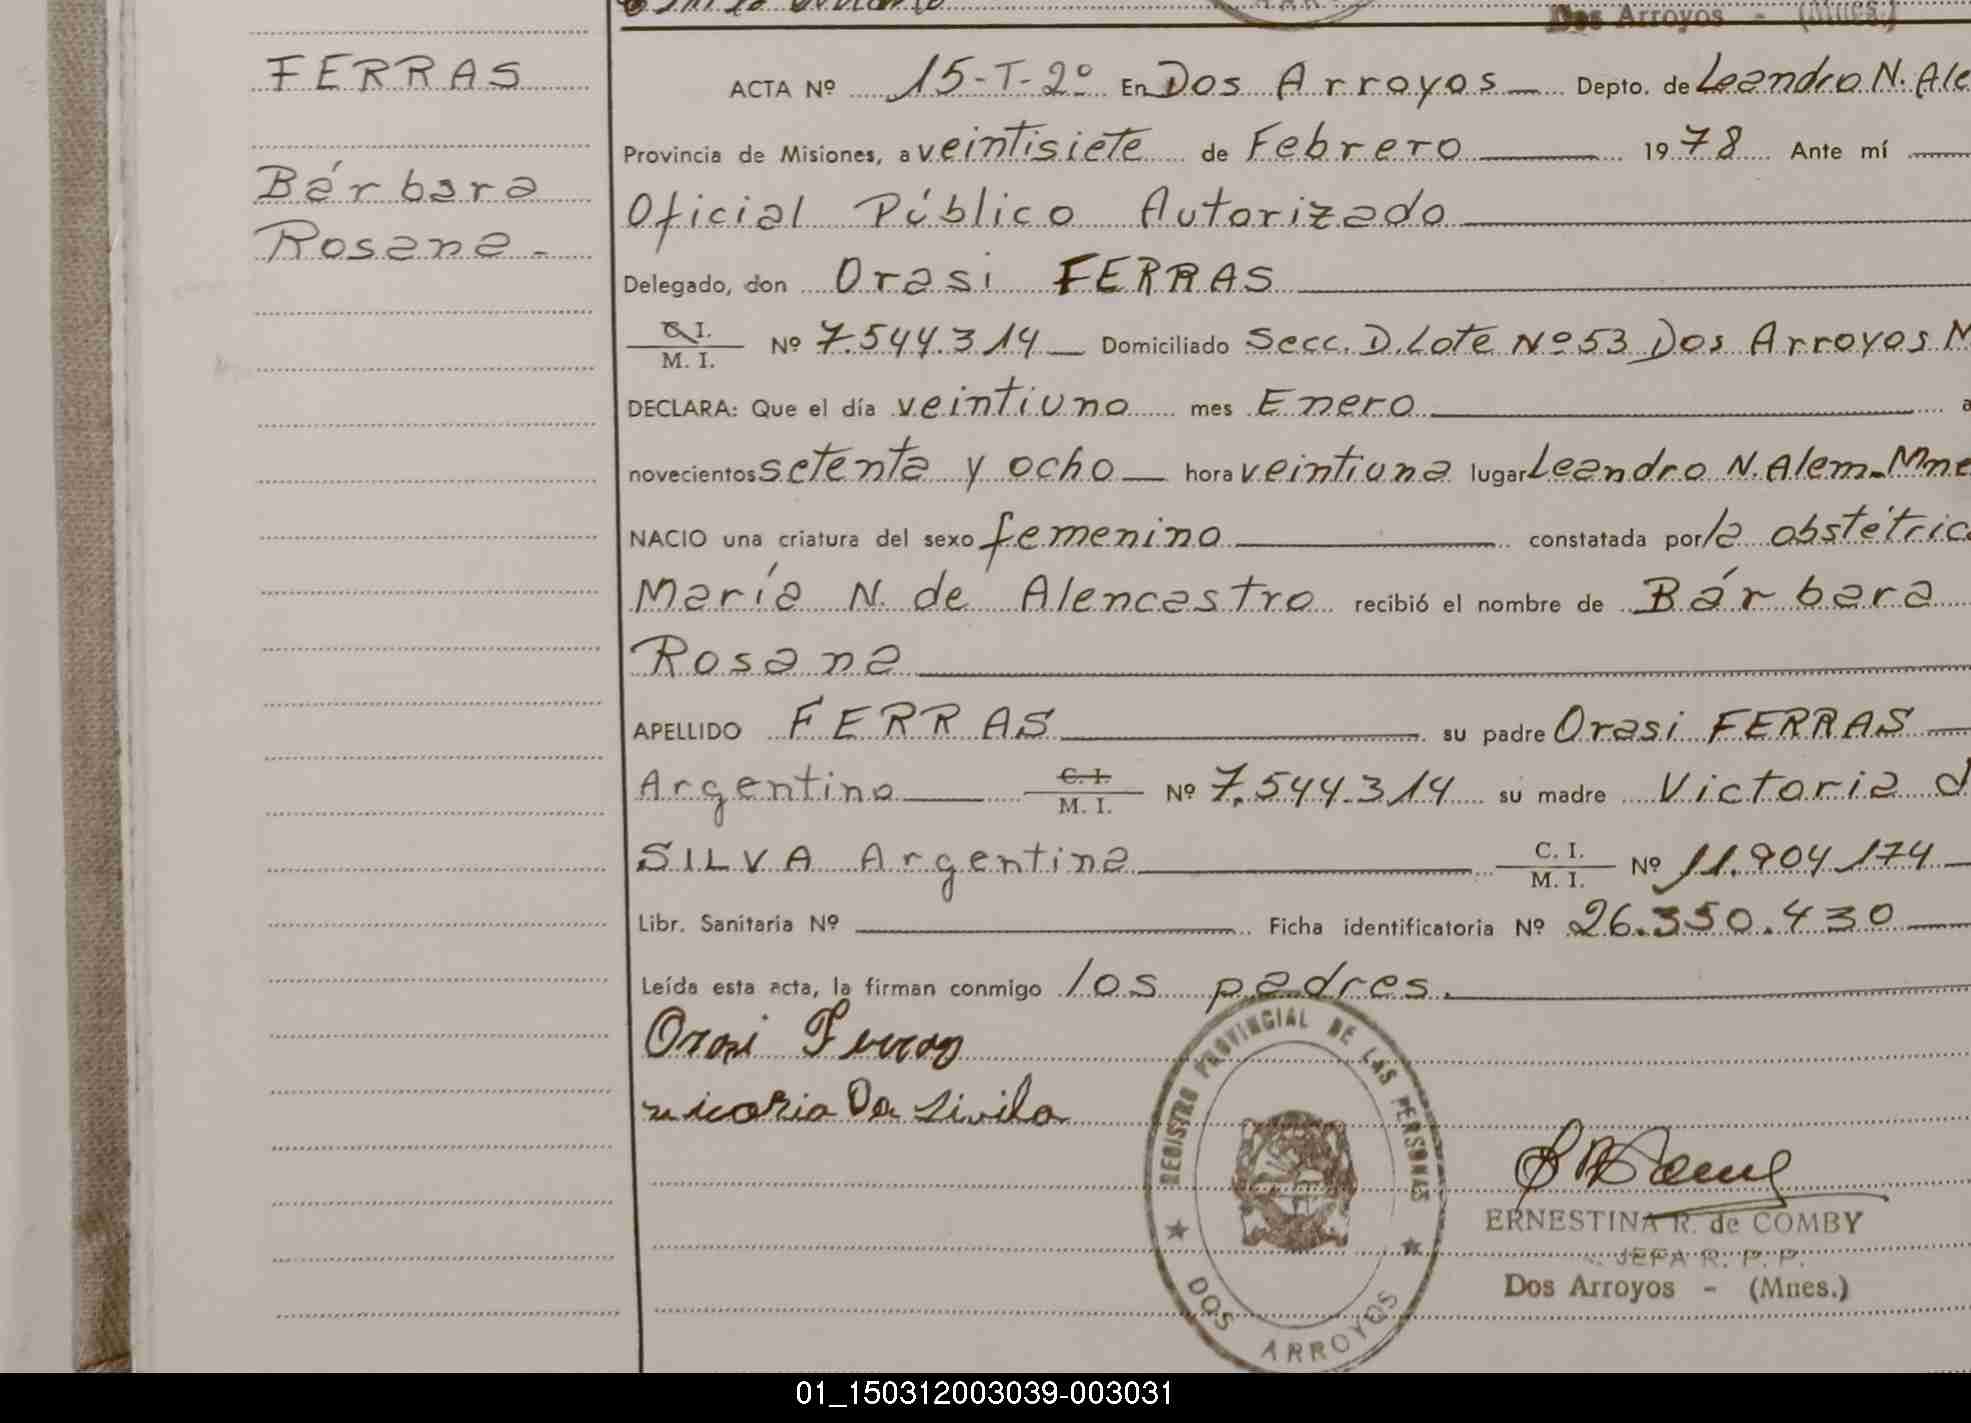 Dos Arroyos - (Mnes.)
FERRAS
Bárbara
Rosana -
ACTA Nº 15-T-2º En Dos Arroyos Depto. de Leandro N. Ale
Provincia de Misiones, a veintisiete de Febrero 1978 Ante mí
Oficial Público Autorizado
Delegado, don Orasi FERRAS
C. I.
M. I. Nº 7.544.314 Domiciliado Secc. D. Lote Nº 53 Dos Arroyos M
DECLARA: Que el día veintiuno mes Enero a
novecientos setenta y ocho hora veintiuna lugar Leandro N. Alem. Mne
NACIO una criatura del sexo femenino constatada por la obstétric
María N. de Alencastro recibió el nombre de Bárbara
Rosana
APELLIDO FERRAS su padre Orasi FERRAS
Argentino C. I. M. I. Nº 7.544.314 su madre Victoria d
SILVA Argentina C. I. M. I. Nº 11.904.174
Libr. Sanitaria Nº Ficha identificatoria Nº 26.350.430
Leída esta acta, la firman conmigo los padres.
Orasi Ferras
vicoria Da Sivila
REGISTRO PROVINCIAL DE LAS PERSONAS
DOS ARROYOS
ERNESTINA R. de COMBY
JEFA R. P. P.
Dos Arroyos - (Mnes.)
01_150312003039-003031